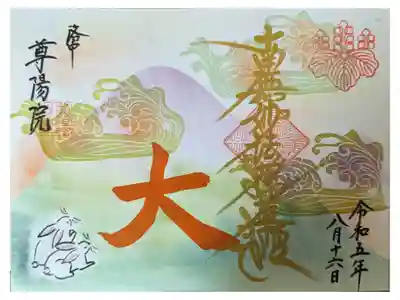 令和五年
八月十六日
南無妙法蓮華経
大
洛中
尊陽院